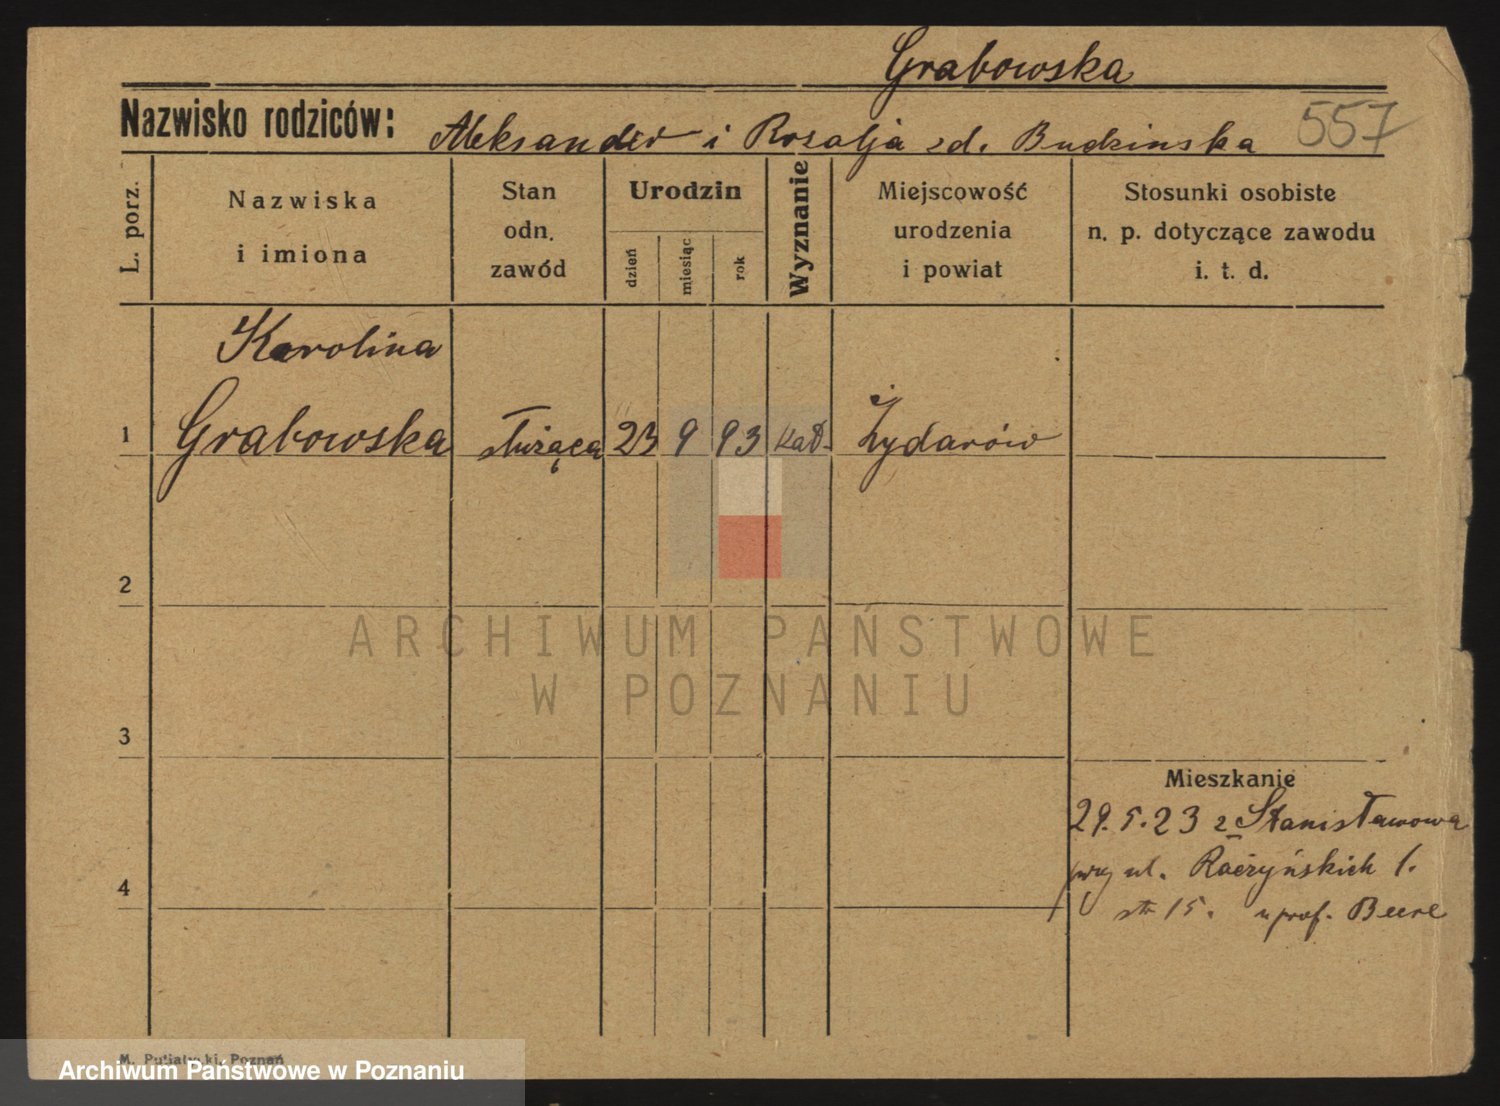 Grabowska
Nazwisko rodziców: Aleksander i Rozalja zd. Budzinska 557
L. porz.
Nazwiska
i imiona
Stan
odn.
zawód
Urodzin
dzień
miesiąc
rok
Wyznanie
Miejscowość
urodzenia
i powiat
Stosunki osobiste
n. p. dotyczące zawodu
i. t. d.
Karolina
1 Grabowska służąca 23 9 93 kat. Żydarów
2
ARCHIWUM PAŃSTWOWE
W POZNANIU
3
Mieszkanie
29.5.23 z Stanisławowa
ul. Raczyńskich 1.
15. u prof. Beere
4
M. Putiatycki, Poznań
Archiwum Państwowe w Poznaniu